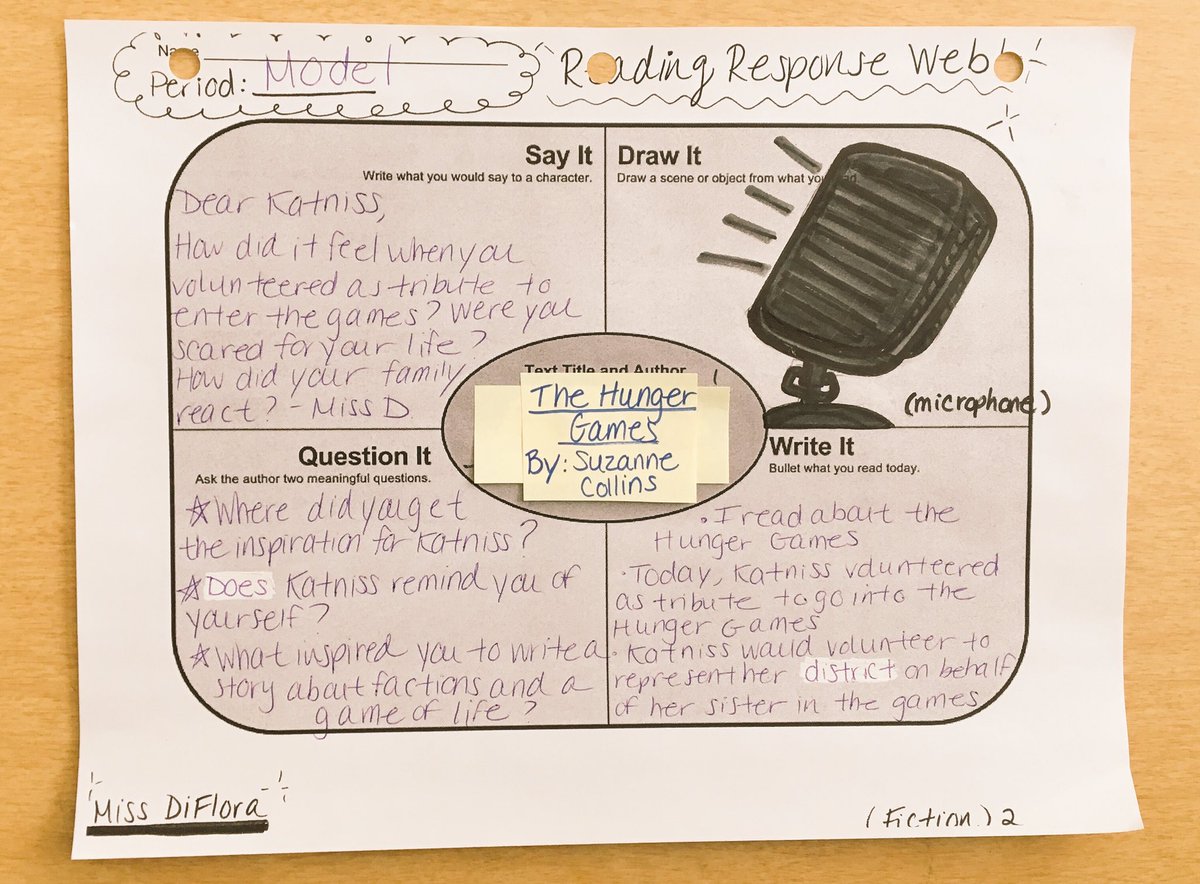 Name
Period: Model
Reading Response Web!
Say It
Write what you would say to a character.
Dear Katniss,
How did it feel when you
volunteered as tribute to
enter the games? Were you
scared for your life?
How did your family
react? - Miss D.
Draw It
Draw a scene or object from what you read.
(microphone)
Text Title and Author
The Hunger
Games
By: Suzanne
Collins
Question It
Ask the author two meaningful questions.
☆Where did you get
the inspiration for Katniss?
☆Does Katniss remind you of
yourself?
☆What inspired you to write a
story about factions and a
game of life?
Write It
Bullet what you read today.
• I read about the
Hunger Games
• Today, Katniss volunteered
as tribute to go into the
Hunger Games
• Katniss would volunteer to
represent her district on behalf
of her sister in the games
Miss DiFlora
(Fiction) 2